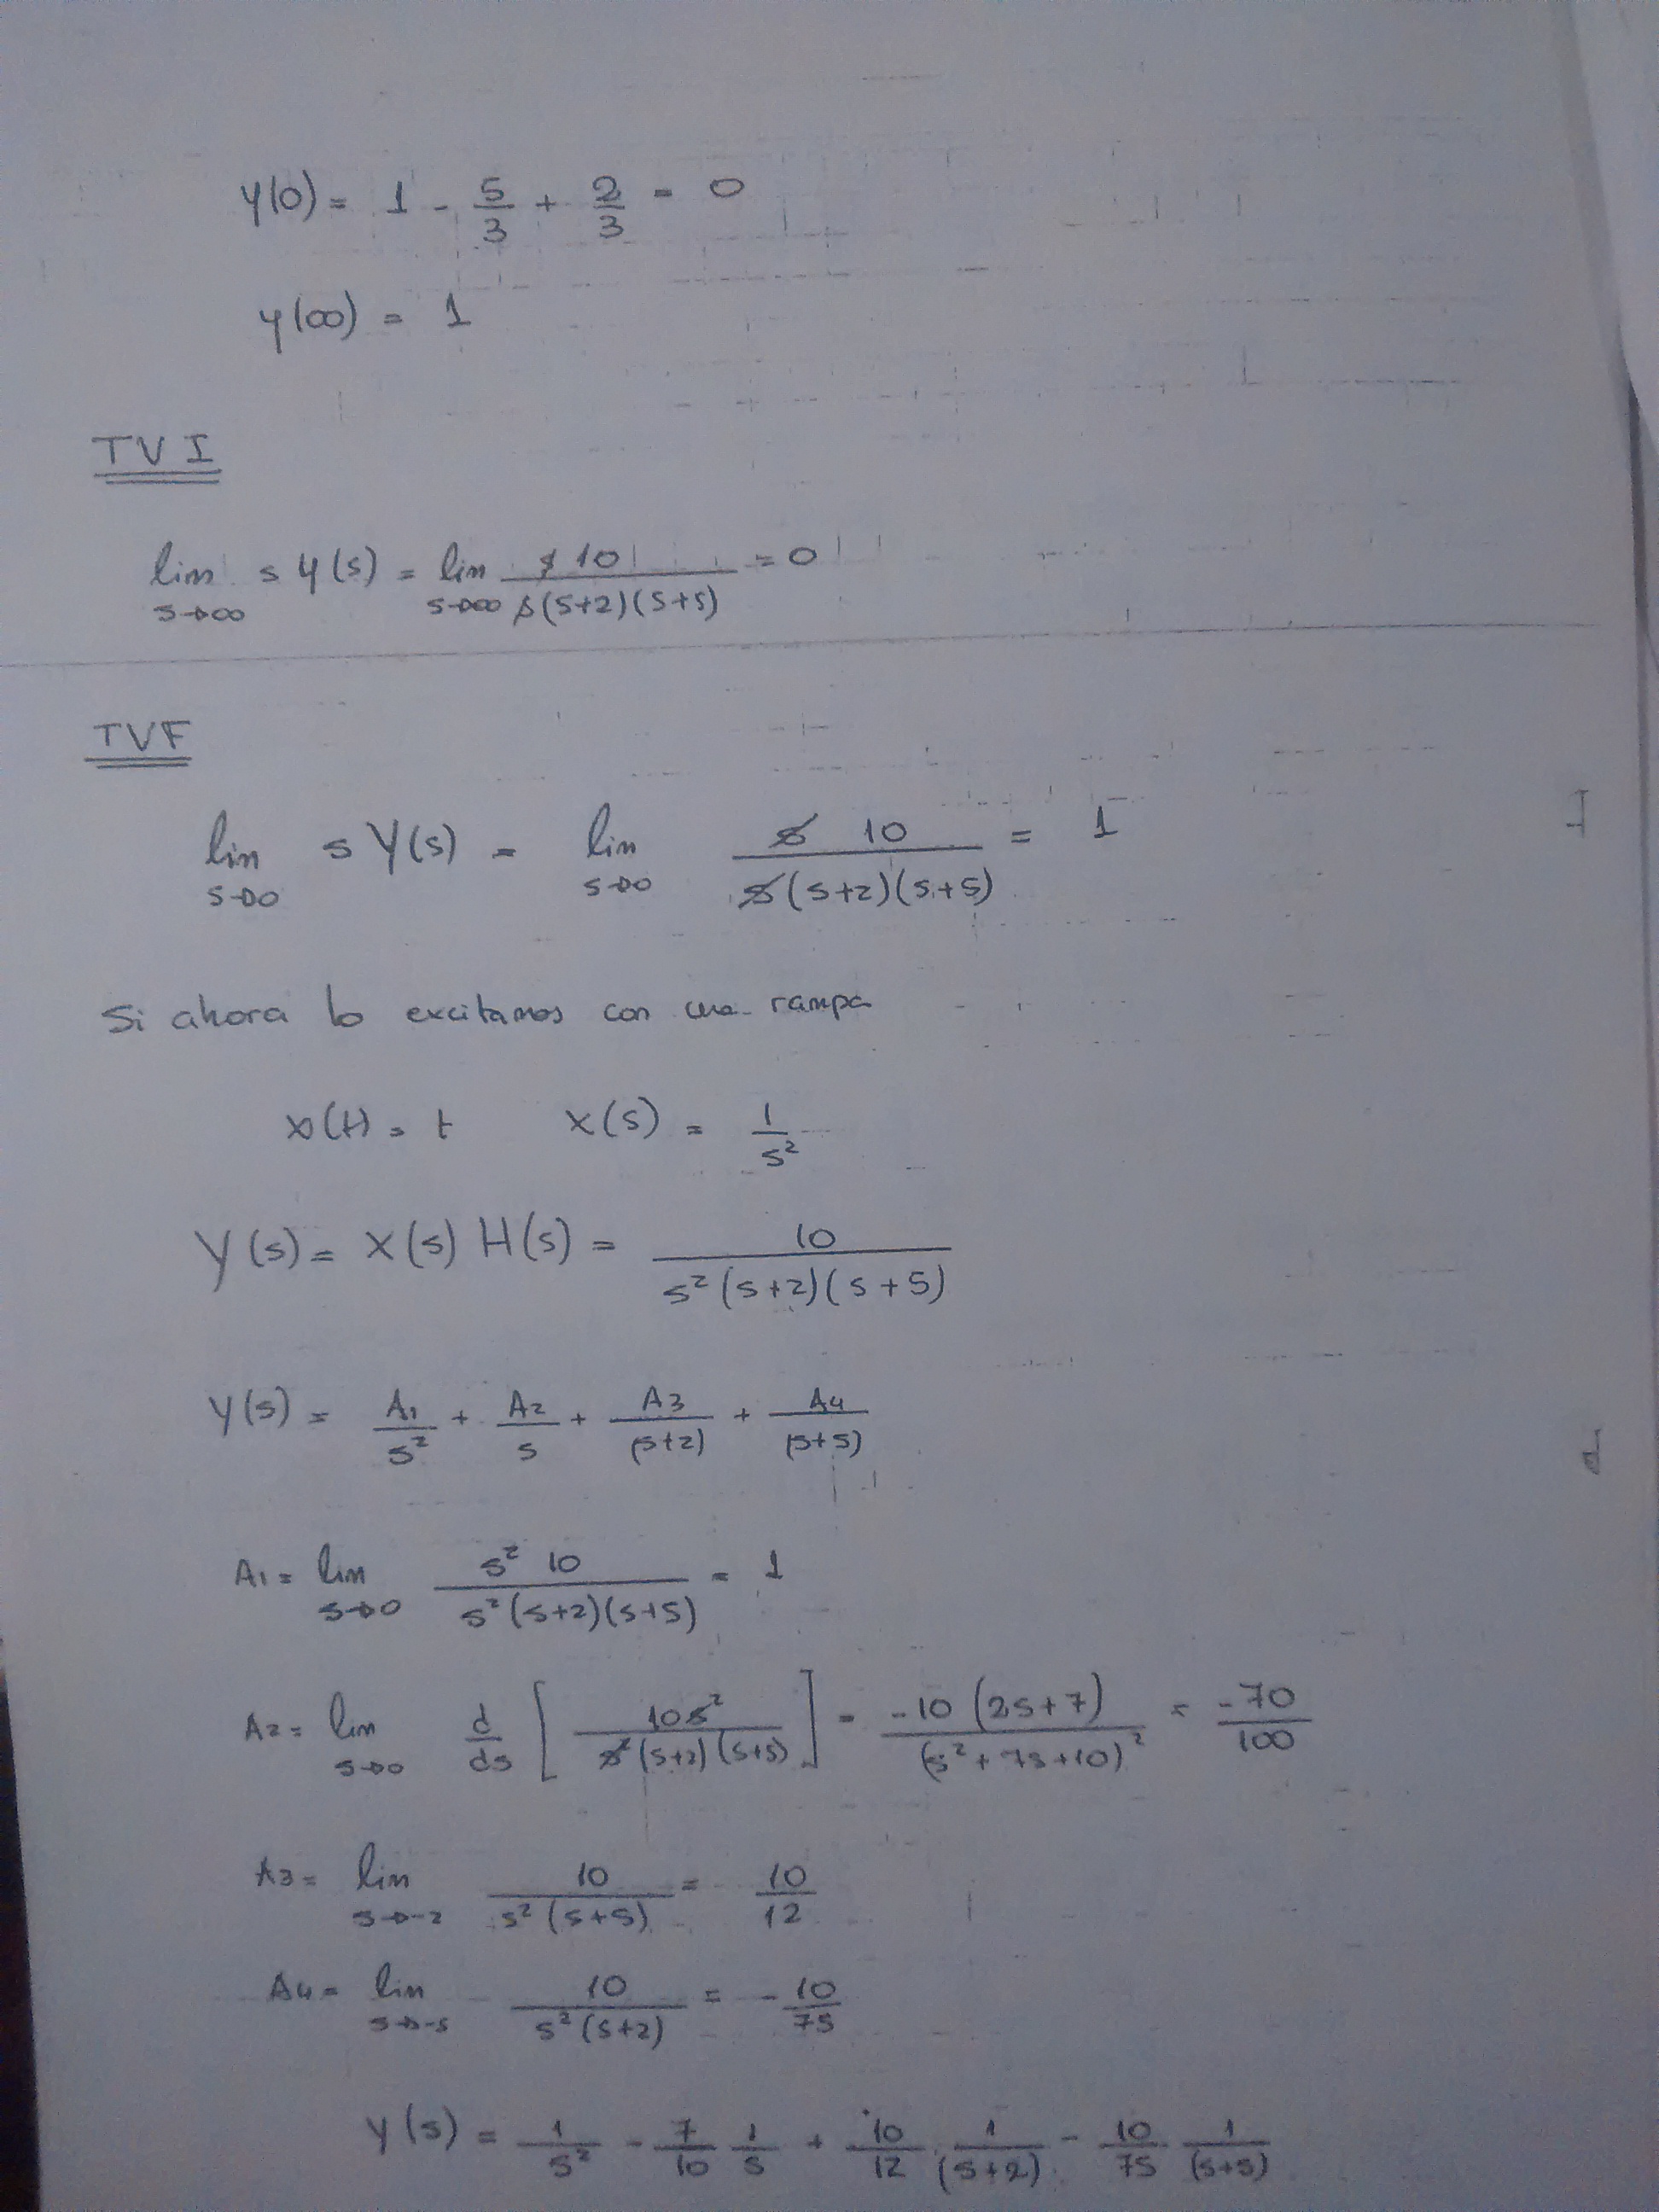 y(0) = 1 - 5/3 + 2/3 = 0
y(∞) = 1
TVI
lim s→∞ s Y(s) = lim s→∞ s 10 / s(s+2)(s+5) = 0
TVF
lim s→0 s Y(s) = lim s→0 s 10 / s(s+2)(s+5) = 1
Si ahora lo excitamos con una rampa
x(t) = t X(s) = 1/s²
Y(s) = X(s) H(s) = 10 / s²(s+2)(s+5)
Y(s) = A1/s² + A2/s + A3/(s+2) + A4/(s+5)
A1 = lim s→0 s² 10 / s²(s+2)(s+5) = 1
A2 = lim s→0 d/ds [10s² / s²(s+2)(s+5)] = -10(2s+7) / (s²+7s+10)² = -70/100
A3 = lim s→-2 10 / s²(s+5) = 10/12
A4 = lim s→-5 10 / s²(s+2) = -10/75
Y(s) = 1/s² - 7/10 1/s + 10/12 · 1/(s+2) - 10/75 1/(s+5)